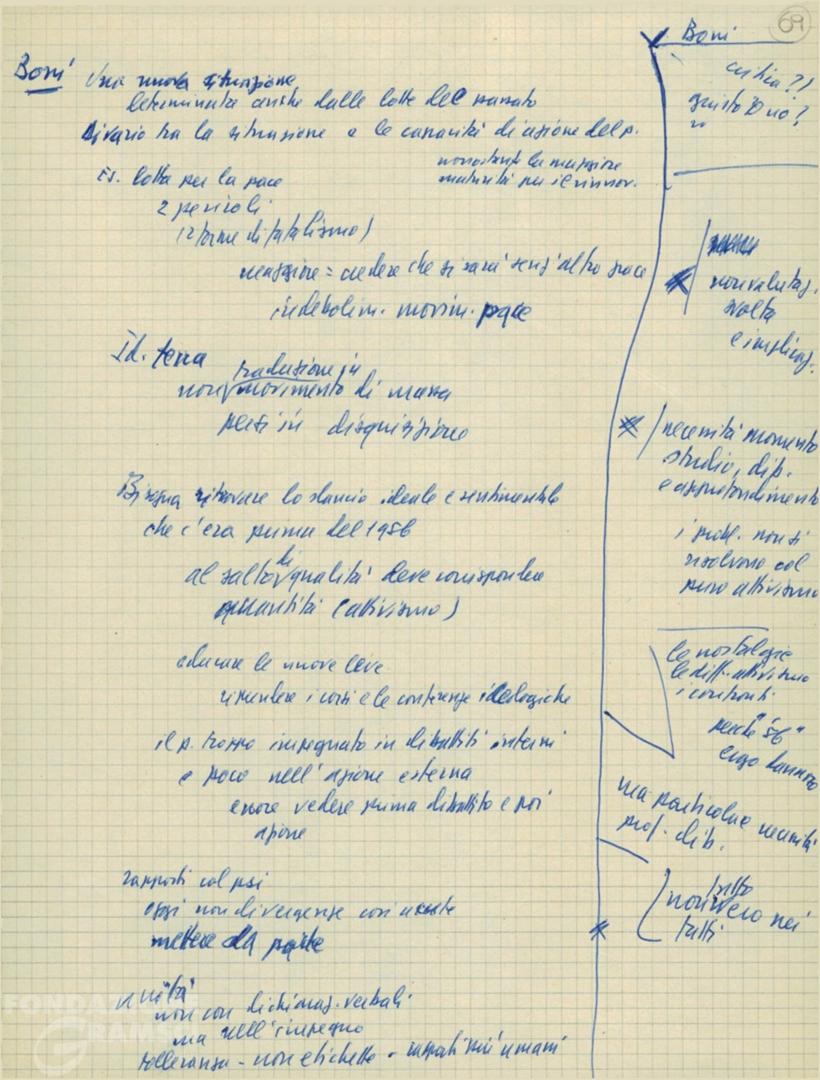 69
Boni
Una nuova situazione
determinata anche dalle lotte del passato
Divario tra la situazione e le capacità di azione del p.
nonostante la maggiore
maturità per il rinnov.
Es. lotta per la pace
2 pericoli
(2 forme di fatalismo)
maggiore = credere che si sarà senz'altro pace
indebolim. movim. pace
Id. terra
non traduzione in movimento di massa
persi in disquisizione
Bisogna ritrovare lo slancio ideale e sentimentale
che c'era prima del 1956
al salto di qualità deve corrispondere
quantità (attivismo)
educare le nuove leve
riprendere i corsi e le conferenze ideologiche
il p. troppo impegnato in dibattiti interni
e poco nell'azione esterna
errore vedere prima dibattito e poi
azione
rapporti col psi
oggi non divergenze così
mettere da parte
unità
non con dichiaraz. verbali
ma nell'impegno
tolleranza - non etichette - rapporti più umani
Boni
critica?!
giusto o no?
non valutaz.
svolta
e implicaz.
necessità momento
studio, dib.
e approfondimento
i probl. non si
risolvono col
puro attivismo
le nostalgie
le diff. attivismo
i confronti
perché "56"
ma particolare necessità
prof. dib.
non tutto vero nei
fatti
FONDAZIONE
GRAMSCI